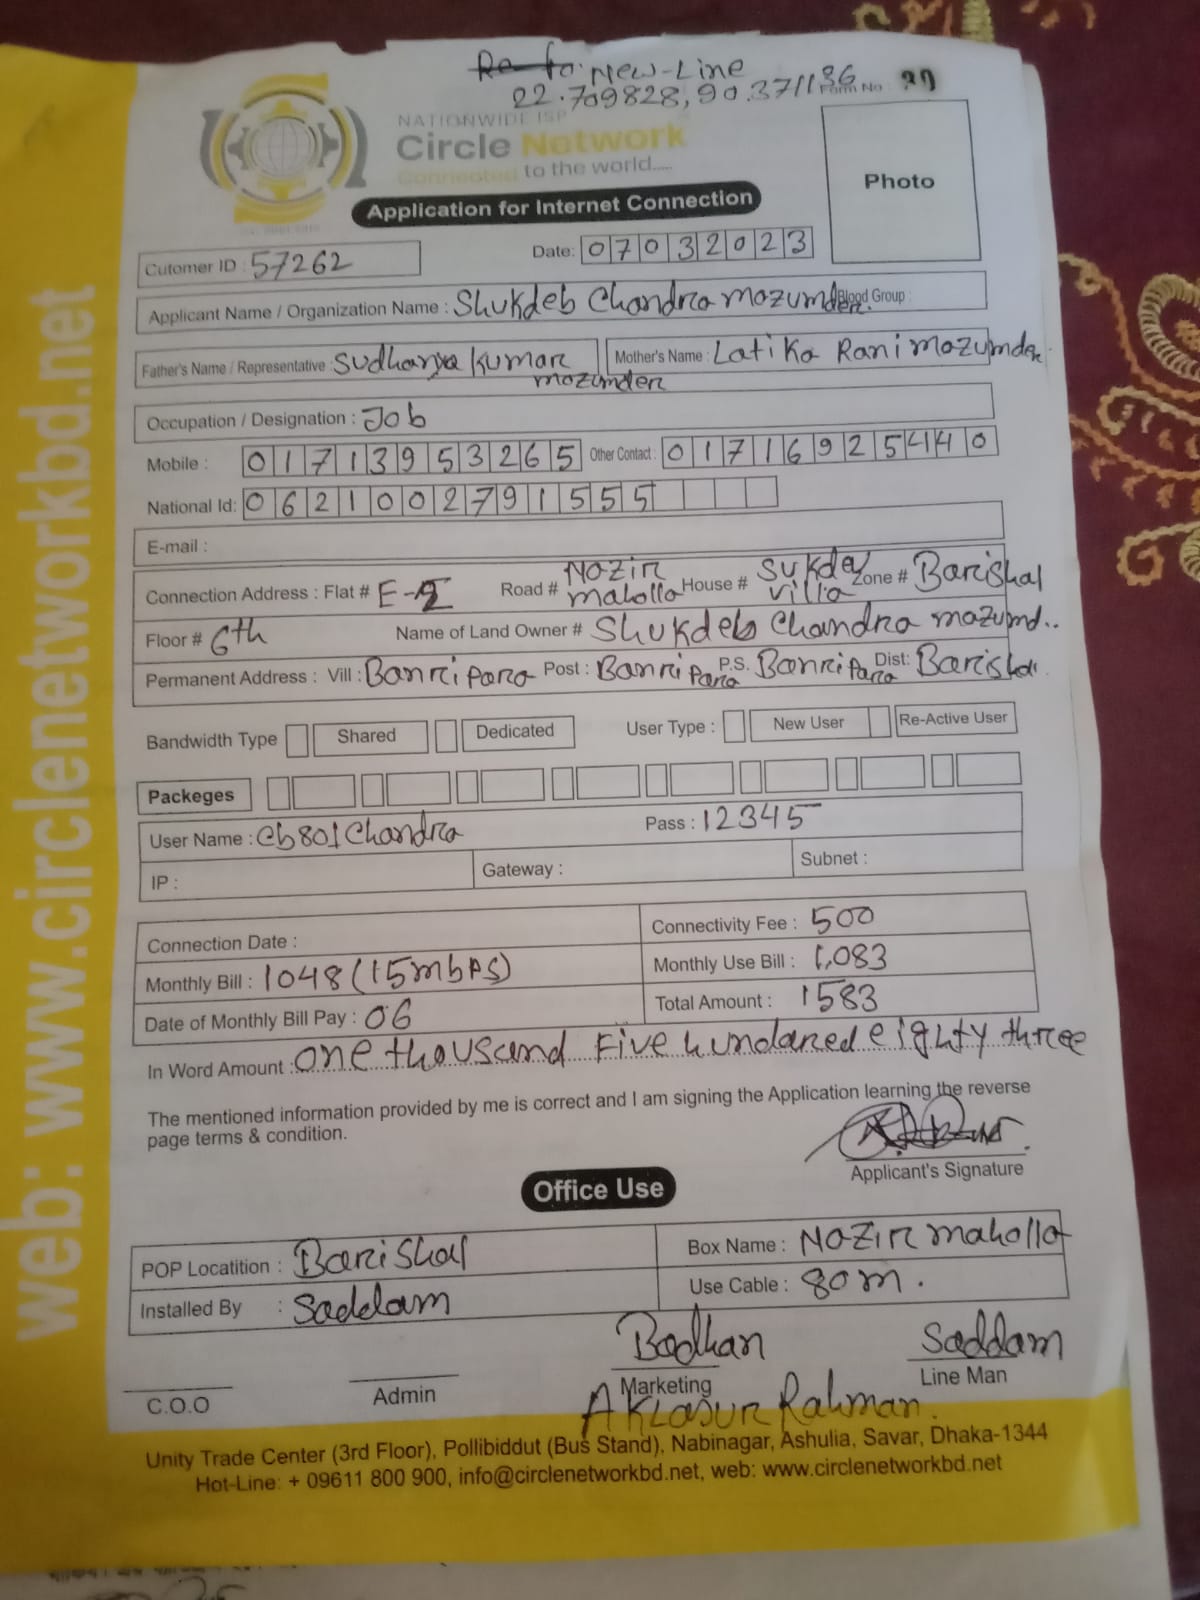 New-Line
22.709828,90.371136
Form No :
NATIONWIDE ISP
Circle Network
Connected to the world.....
Photo
Application for Internet Connection
Cutomer ID : 57262
Date: 07032023
Applicant Name / Organization Name : Shukdeb Chandra mozumder. Blood Group :
Father's Name / Representative : Sudhanya Kumar mozumder
Mother's Name : Latika Rani mozumder
Occupation / Designation : Job
Mobile : 01713953265 Other Contact : 01716925440
National Id: 0621002791555
E-mail :
Connection Address : Flat # E-5 Road # Nozir maholla House # Sukdev villa Zone # Barishal
Floor # 6th Name of Land Owner # Shukdeb Chandra mozumd..
Permanent Address : Vill : Banripara Post : Banripara P.S. Banripara Dist: Barishal
Bandwidth Type Shared Dedicated User Type : New User Re-Active User
Packeges
User Name : Cb801Chandra Pass : 12345
IP : Gateway : Subnet :
Connection Date : Connectivity Fee : 500
Monthly Bill : 1048 (15mbps) Monthly Use Bill : 1,083
Date of Monthly Bill Pay : 06 Total Amount : 1583
In Word Amount : one thousand Five hundared eighty three
The mentioned information provided by me is correct and I am signing the Application learning the reverse
page terms & condition.
Applicant's Signature
Office Use
POP Locatition : Barishal Box Name : Nozir maholla
Installed By : Saddam Use Cable : 80m.
Badhan Saddam
C.O.O Admin Marketing Line Man
Aklasur Rahman.
Unity Trade Center (3rd Floor), Pollibiddut (Bus Stand), Nabinagar, Ashulia, Savar, Dhaka-1344
Hot-Line: + 09611 800 900, info@circlenetworkbd.net, web: www.circlenetworkbd.net
web: www.circlenetworkbd.net